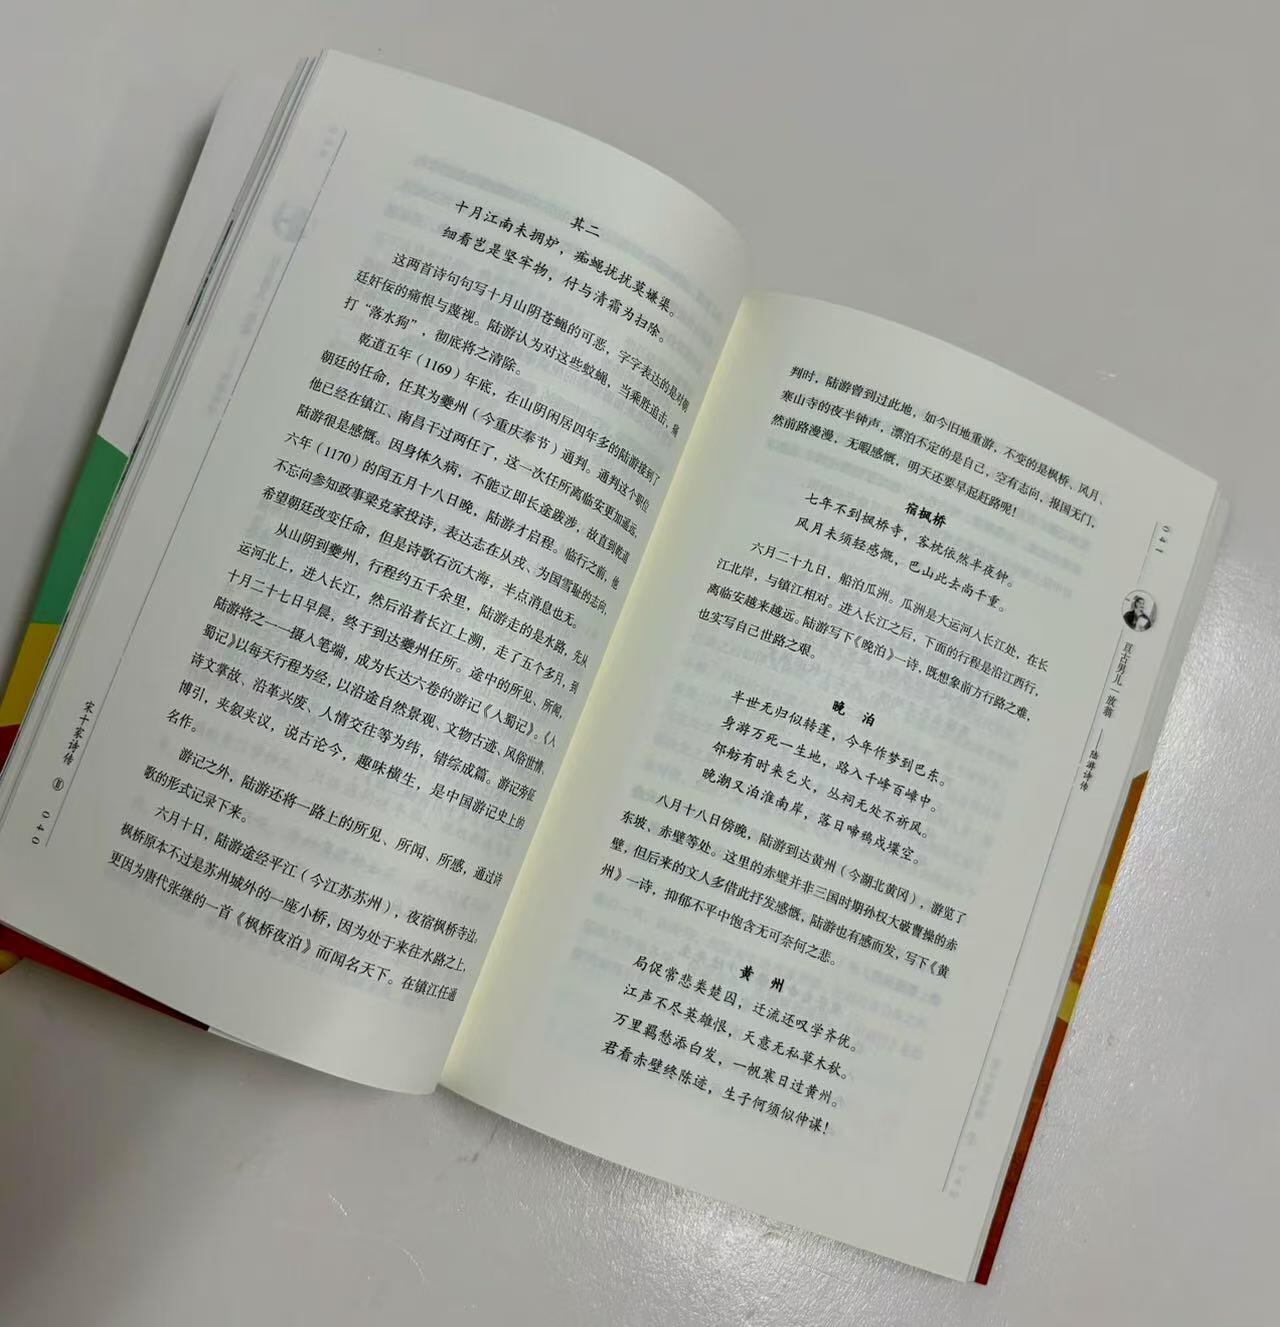 其二
十月江南未拥炉，痴蝇扰扰莫嫌渠。
细看岂是坚牢物，付与清霜为扫除。
这两首诗句句写十月山阴苍蝇的可恶，字字表达的是对朝
廷奸佞的痛恨与蔑视。陆游认为对这些蚊蝇，当乘胜追击，痛
打“落水狗”，彻底将之清除。
乾道五年（1169）年底，在山阴闲居四年多的陆游接到了
朝廷的任命，任其为夔州（今重庆奉节）通判。通判这个职位
他已经在镇江、南昌干过两任了，这一次任所离临安更加遥远，
陆游很是感慨。因身体久病，不能立即长途跋涉，故直到乾道
六年（1170）的闰五月十八日晚，陆游才启程。临行之前，他
不忘向参知政事梁克家投诗，表达志在从戎、为国雪耻的志向，
希望朝廷改变任命，但是诗歌石沉大海，半点消息也无。
从山阴到夔州，行程约五千余里，陆游走的是水路，先从
运河北上，进入长江，然后沿着长江上溯，走了五个多月，到
十月二十七日早晨，终于到达夔州任所。途中的所见、所闻，
陆游将之一一摄入笔端，成为长达六卷的游记《入蜀记》。《入
蜀记》以每天行程为经，以沿途自然景观、文物古迹、风俗世情、
诗文掌故、沿革兴废、人情交往等为纬，错综成篇。游记旁征
博引，夹叙夹议，说古论今，趣味横生，是中国游记史上的
名作。
游记之外，陆游还将一路上的所见、所闻、所感，通过诗
歌的形式记录下来。
六月十日，陆游途经平江（今江苏苏州），夜宿枫桥寺边。
枫桥原本不过是苏州城外的一座小桥，因为处于来往水路之上，
更因为唐代张继的一首《枫桥夜泊》而闻名天下。在镇江任通
宋十家诗传
040
判时，陆游曾到过此地，如今旧地重游，不变的是枫桥、风月、
寒山寺的夜半钟声，漂泊不定的是自己，空有志向，报国无门，
然前路漫漫，无暇感慨，明天还要早起赶路呢！
宿枫桥
七年不到枫桥寺，客枕依然半夜钟。
风月未须轻感慨，巴山此去尚千重。
六月二十九日，船泊瓜洲。瓜洲是大运河入长江处，在长
江北岸，与镇江相对。进入长江之后，下面的行程是沿江西行，
离临安越来越远。陆游写下《晚泊》一诗，既想象前方行路之难，
也实写自己世路之艰。
晚 泊
半世无归似转蓬，今年作梦到巴东。
身游万死一生地，路入千峰百嶂中。
邻舫有时来乞火，丛祠无处不祈风。
晚潮又泊淮南岸，落日啼鸦戍堞空。
八月十八日傍晚，陆游到达黄州（今湖北黄冈），游览了
东坡、赤壁等处。这里的赤壁并非三国时期孙权大破曹操的赤
壁，但后来的文人多借此抒发感慨，陆游也有感而发，写下《黄
州》一诗，抑郁不平中饱含无可奈何之悲。
黄 州
局促常悲类楚囚，迁流还叹学齐优。
江声不尽英雄恨，天意无私草木秋。
万里羁愁添白发，一帆寒日过黄州。
君看赤壁终陈迹，生子何须似仲谋！
041
亘古男儿一放翁——陆游诗传